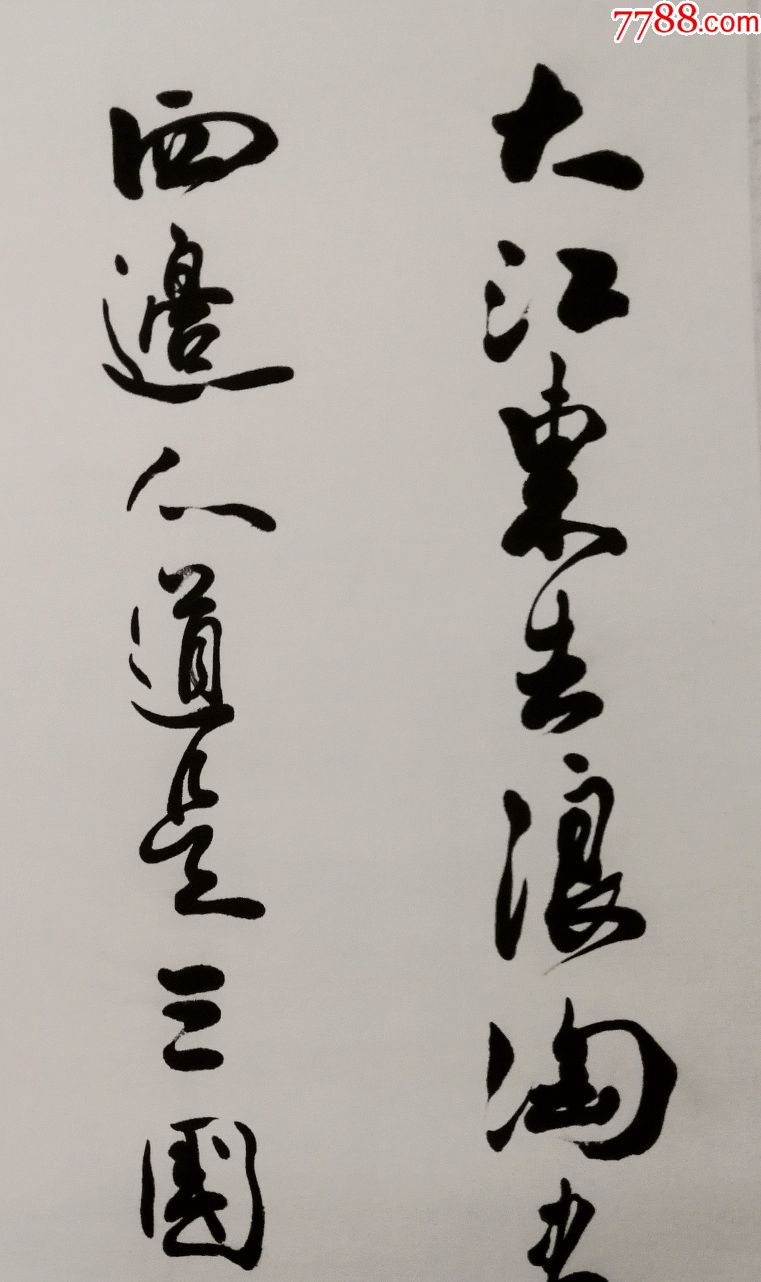 7788.com
大江東去浪淘
西邊人道是三國